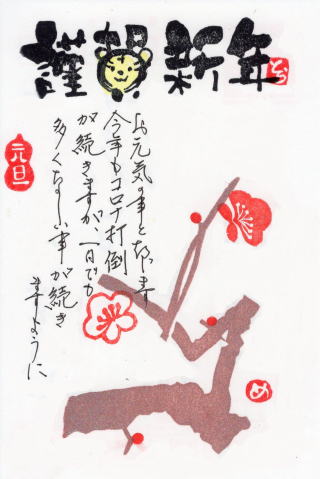 謹賀新年
とら
お元気の事と存じます
今年もコロナ打倒
が続きますが、一日でも
多く 事が続き
ますように
元旦
め